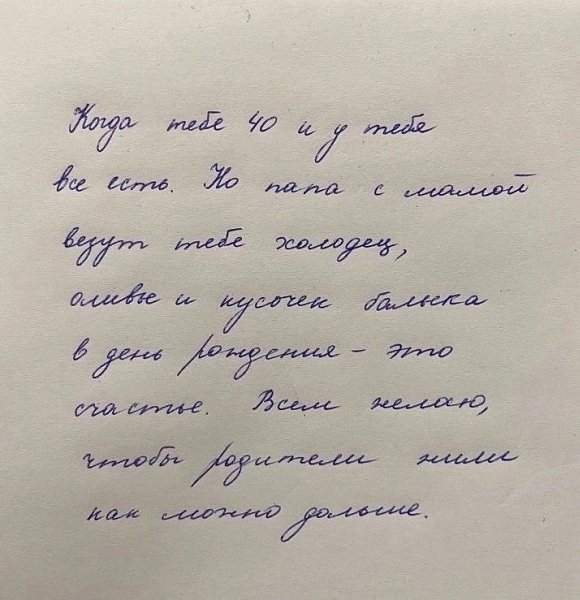 Когда тебе 40 и у тебя
все есть. Но папа с мамой
везут тебе холодец,
оливье и кусочек балыка
в день рождения – это
счастье. Всем желаю,
чтобы родители жили
как можно дальше.